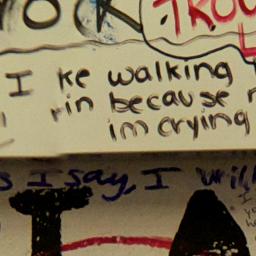 OCK TROU
I ke walking
rin because
im crying
s I say, I will
I